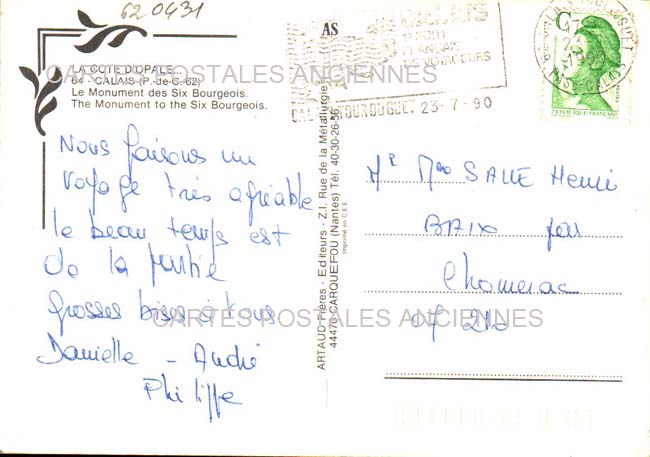 62 0431
LA COTE D'OPALE...
64 - CALAIS (P.-de-C. 62)
Le Monument des Six Bourgeois.
The Monument to the Six Bourgeois.
CARTES POSTALES ANCIENNES
Nous faisons un
voyage très agréable
le beau temps est
de la partie
grosses bises à tous
Danielle - André
Philippe
CARTES POSTALES ANCIENNES
AS
ARTAUD Frères - Editeurs - Z.I. Rue de la Métallurgie
44470 CARQUEFOU (Nantes) Tél. 40-30-26-56
Imprimé en C.E.E.
DE VOYAGEURS
23-7-90
PAS-CALAIS
REPUBLIQUE FRANÇAISE
Mr Mme SALLE Henri
BAIX par
Chomerac
07 210